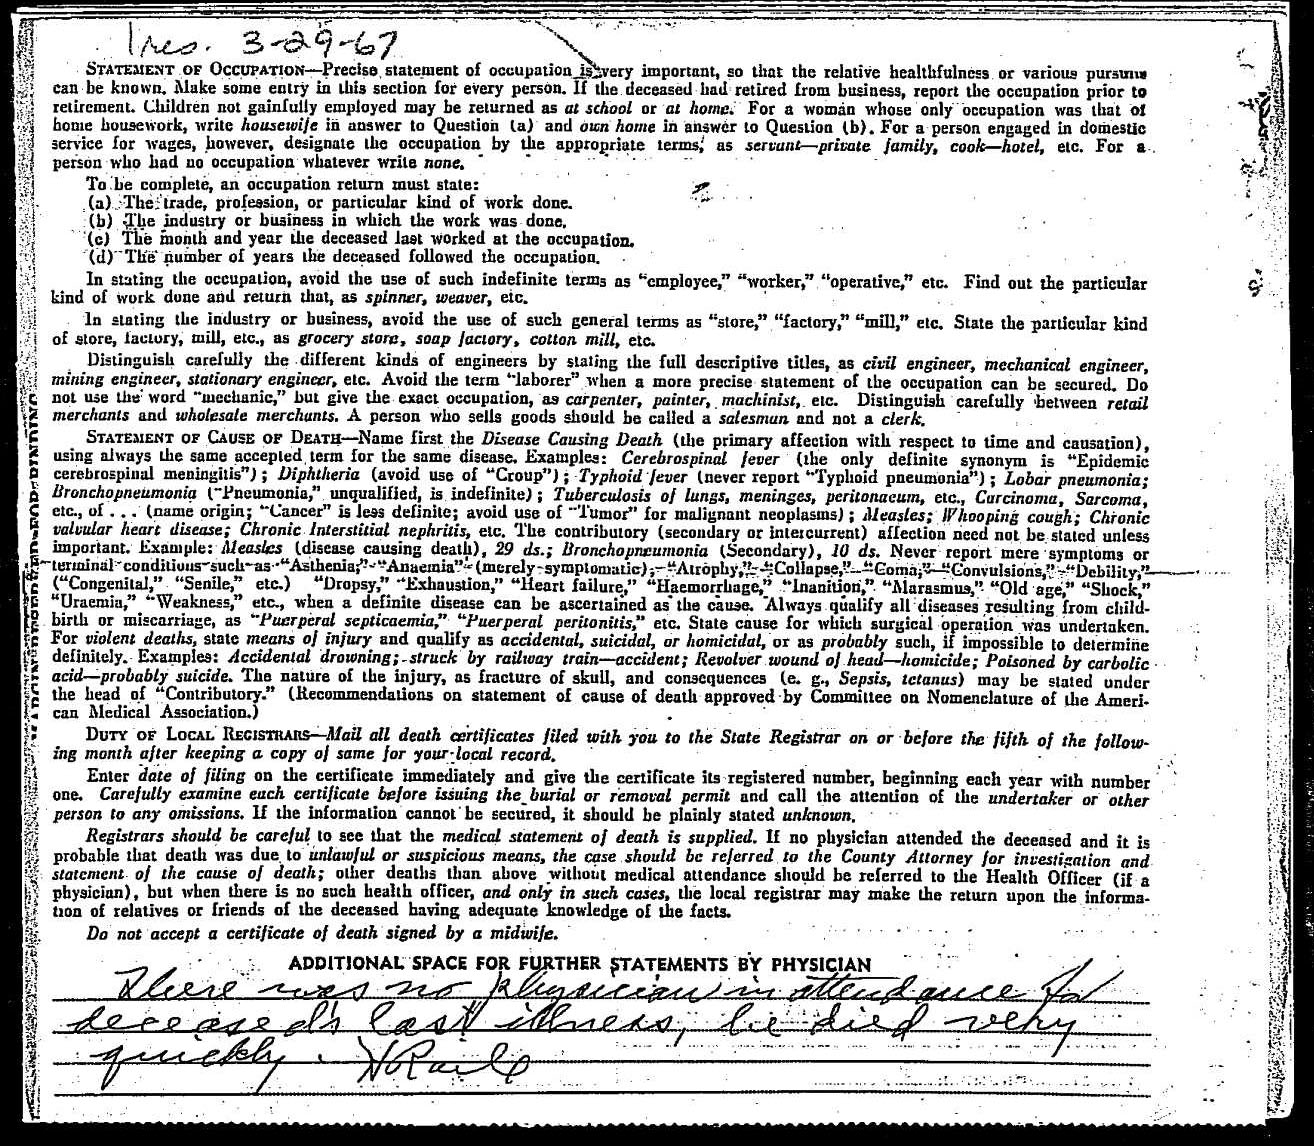 3-29-67
STATEMENT OF OCCUPATION—Precise statement of occupation is very important, so that the relative healthfulness or various pursuits
can be known. Make some entry in this section for every person. If the deceased had retired from business, report the occupation prior to
retirement. Children not gainfully employed may be returned as at school or at home. For a woman whose only occupation was that of
home housework, write housewife in answer to Question (a) and own home in answer to Question (b). For a person engaged in domestic
service for wages, however, designate the occupation by the appropriate terms, as servant—private family, cook—hotel, etc. For a
person who had no occupation whatever write none.
To be complete, an occupation return must state:
(a) The trade, profession, or particular kind of work done.
(b) The industry or business in which the work was done.
(c) The month and year the deceased last worked at the occupation.
(d) The number of years the deceased followed the occupation.
In stating the occupation, avoid the use of such indefinite terms as “employee,” “worker,” “operative,” etc. Find out the particular
kind of work done and return that, as spinner, weaver, etc.
In stating the industry or business, avoid the use of such general terms as “store,” “factory,” “mill,” etc. State the particular kind
of store, factory, mill, etc., as grocery store, soap factory, cotton mill, etc.
Distinguish carefully the different kinds of engineers by stating the full descriptive titles, as civil engineer, mechanical engineer,
mining engineer, stationary engineer, etc. Avoid the term “laborer” when a more precise statement of the occupation can be secured. Do
not use the word “mechanic,” but give the exact occupation, as carpenter, painter, machinist, etc. Distinguish carefully between retail
merchants and wholesale merchants. A person who sells goods should be called a salesman and not a clerk.
STATEMENT OF CAUSE OF DEATH—Name first the Disease Causing Death (the primary affection with respect to time and causation),
using always the same accepted term for the same disease. Examples: Cerebrospinal fever (the only definite synonym is “Epidemic
cerebrospinal meningitis”); Diphtheria (avoid use of “Croup”); Typhoid fever (never report “Typhoid pneumonia”); Lobar pneumonia;
Bronchopneumonia (“Pneumonia,” unqualified, is indefinite); Tuberculosis of lungs, meninges, peritonaeum, etc., Carcinoma, Sarcoma,
etc., of . . . (name origin; “Cancer” is less definite; avoid use of “Tumor” for malignant neoplasms); Measles; Whooping cough; Chronic
valvular heart disease; Chronic Interstitial nephritis, etc. The contributory (secondary or intercurrent) affection need not be stated unless
important. Example: Measles (disease causing death), 29 ds.; Bronchopneumonia (Secondary), 10 ds. Never report mere symptoms or
terminal conditions such as “Asthenia,” “Anaemia” (merely symptomatic); “Atrophy,” “Collapse,” “Coma,” “Convulsions,” “Debility,”
(“Congenital,” “Senile,” etc.) “Dropsy,” “Exhaustion,” “Heart failure,” “Haemorrhage,” “Inanition,” “Marasmus,” “Old age,” “Shock,”
“Uraemia,” “Weakness,” etc., when a definite disease can be ascertained as the cause. Always qualify all diseases resulting from child-
birth or miscarriage, as “Puerperal septicaemia,” “Puerperal peritonitis,” etc. State cause for which surgical operation was undertaken.
For violent deaths, state means of injury and qualify as accidental, suicidal, or homicidal, or as probably such, if impossible to determine
definitely. Examples: Accidental drowning; struck by railway train—accident; Revolver wound of head—homicide; Poisoned by carbolic
acid—probably suicide. The nature of the injury, as fracture of skull, and consequences (e. g., Sepsis, tetanus) may be stated under
the head of “Contributory.” (Recommendations on statement of cause of death approved by Committee on Nomenclature of the Ameri-
can Medical Association.)
DUTY OF LOCAL REGISTRARS—Mail all death certificates filed with you to the State Registrar on or before the fifth of the follow-
ing month after keeping a copy of same for your local record.
Enter date of filing on the certificate immediately and give the certificate its registered number, beginning each year with number
one. Carefully examine each certificate before issuing the burial or removal permit and call the attention of the undertaker or other
person to any omissions. If the information cannot be secured, it should be plainly stated unknown.
Registrars should be careful to see that the medical statement of death is supplied. If no physician attended the deceased and it is
probable that death was due to unlawful or suspicious means, the case should be referred to the County Attorney for investigation and
statement of the cause of death; other deaths than above without medical attendance should be referred to the Health Officer (if a
physician), but when there is no such health officer, and only in such cases, the local registrar may make the return upon the informa-
tion of relatives or friends of the deceased having adequate knowledge of the facts.
Do not accept a certificate of death signed by a midwife.
ADDITIONAL SPACE FOR FURTHER STATEMENTS BY PHYSICIAN
There was no physician in attendance for
deceased's last illness, he died very
quickly.